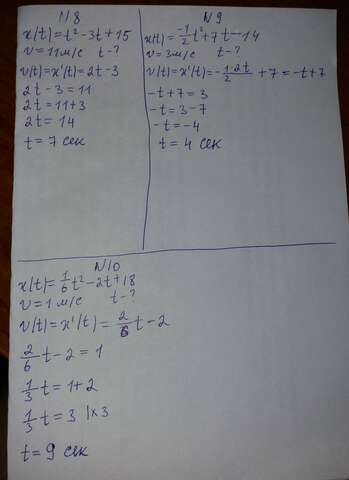 N8
x(t)=t²-3t+15
v=11м/с t-?
v(t)=x'(t)=2t-3
2t-3=11
2t=11+3
2t=14
t=7 сек
N9
x(t)=-1/2t²+7t-14
v=3м/с t-?
v(t)=x'(t)=-1·2t/2+7=-t+7
-t+7=3
-t=3-7
-t=-4
t=4 сек
N10
x(t)=1/6t²-2t+18
v=1м/с t-?
v(t)=x'(t)=2/6t-2
2/6t-2=1
1/3t=1+2
1/3t=3 |x3
t=9 сек